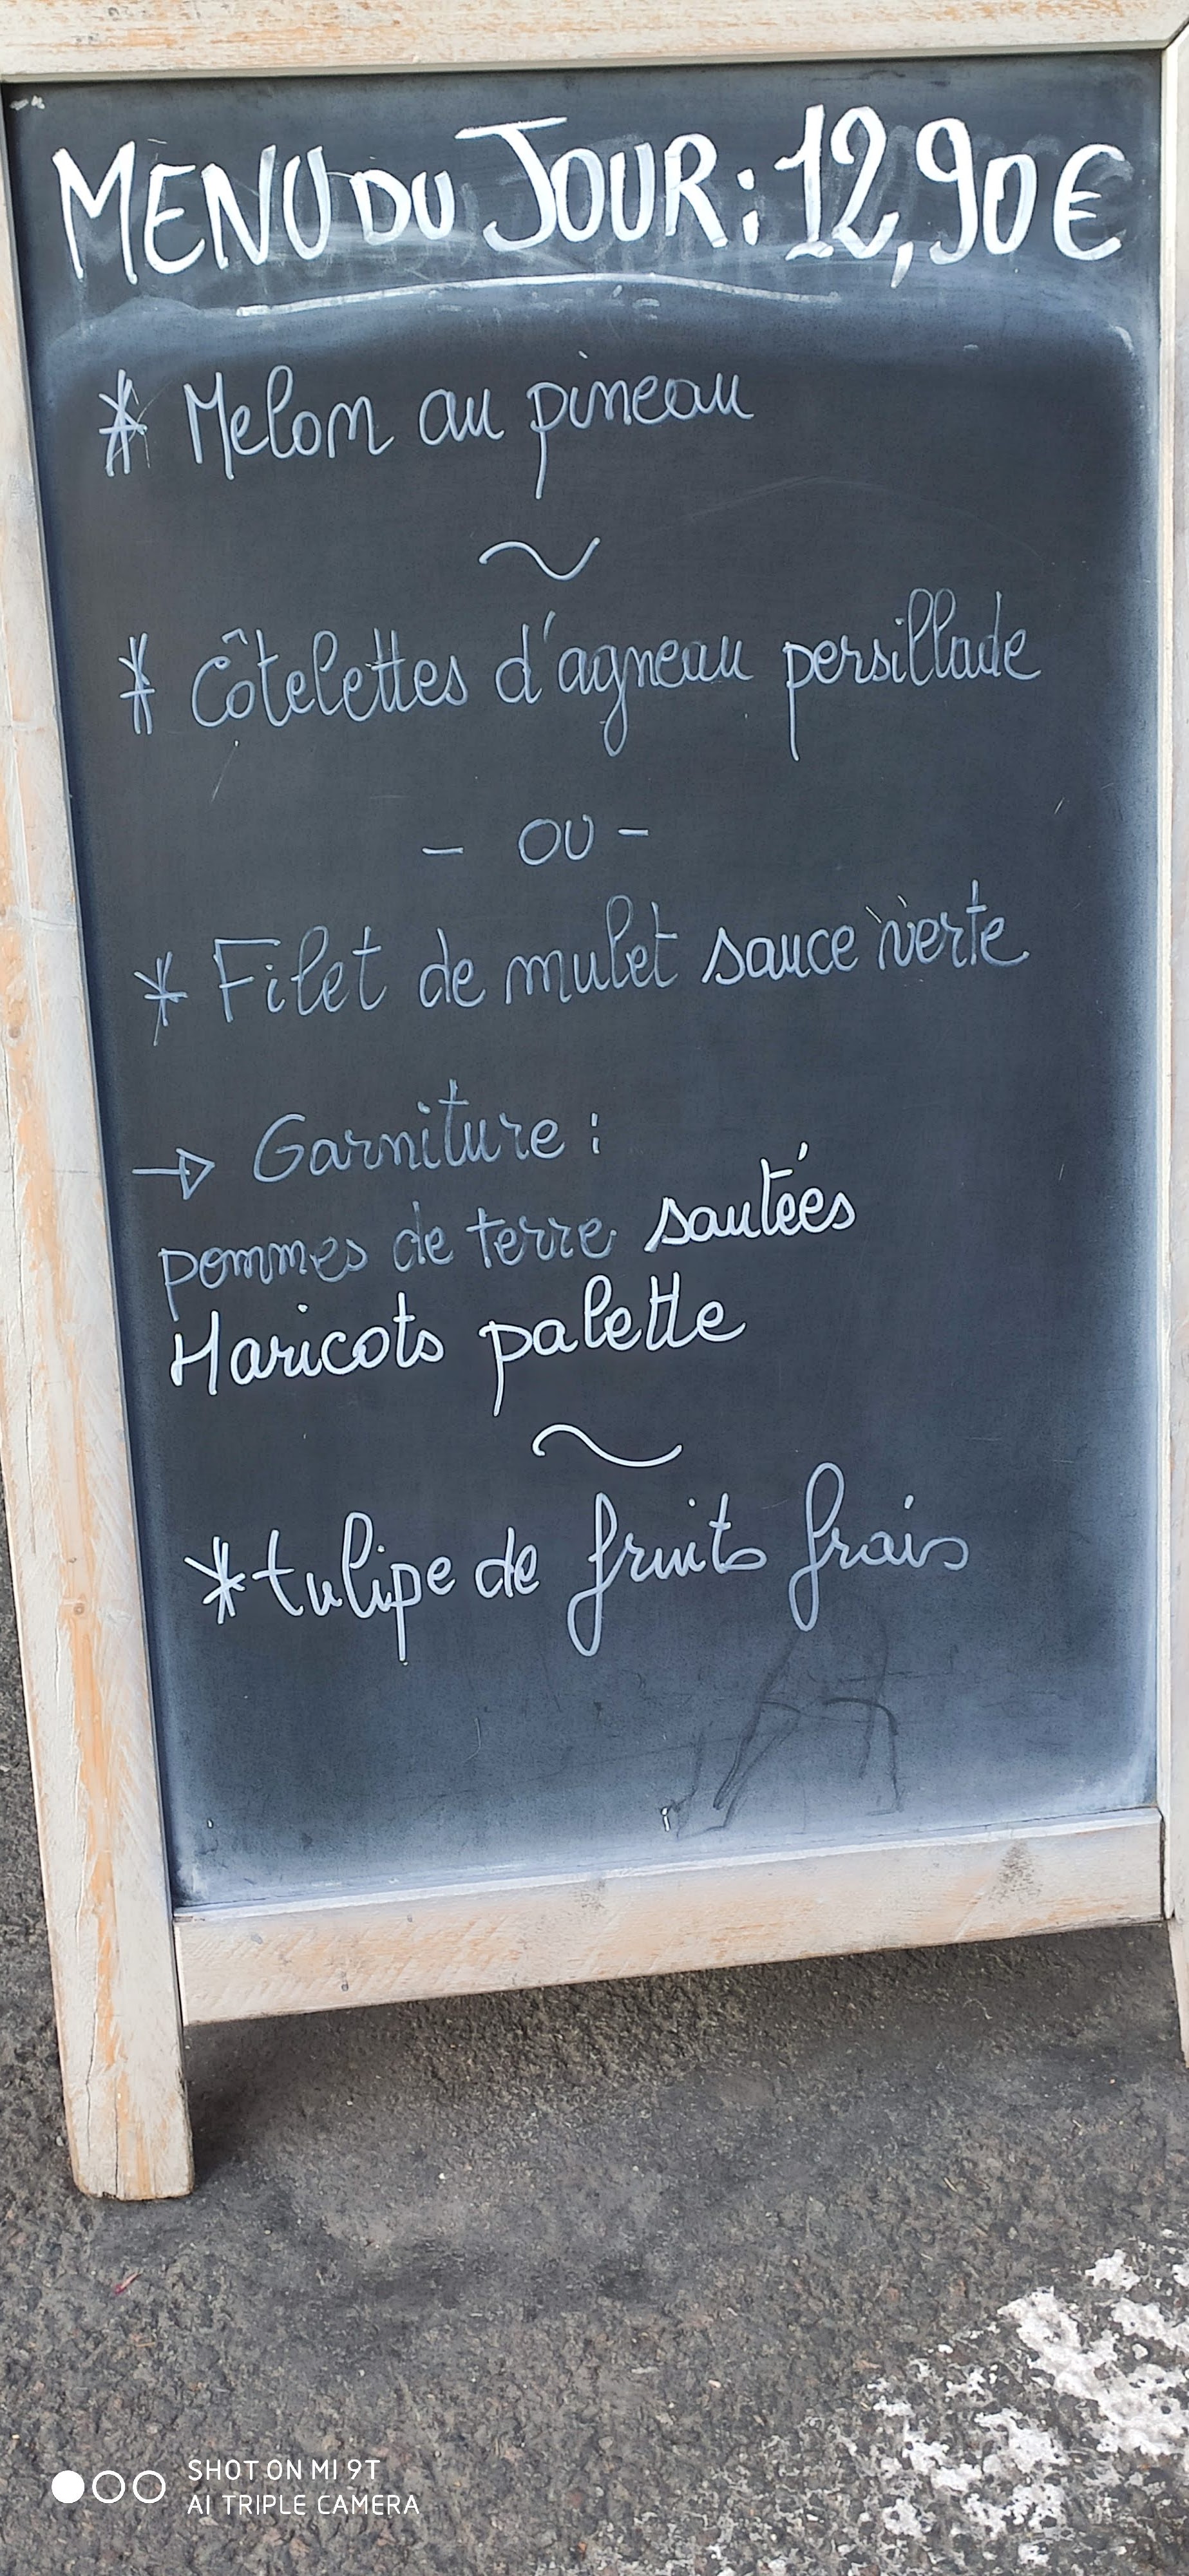 MENU DU JOUR : 12,90 €
* Melon au pineau
~
* Côtelettes d'agneau persillade
- OU -
* Filet de mulet sauce verte
→ Garniture :
pommes de terre sautées
Haricots palette
~
* tulipe de fruits frais
SHOT ON MI 9T
AI TRIPLE CAMERA